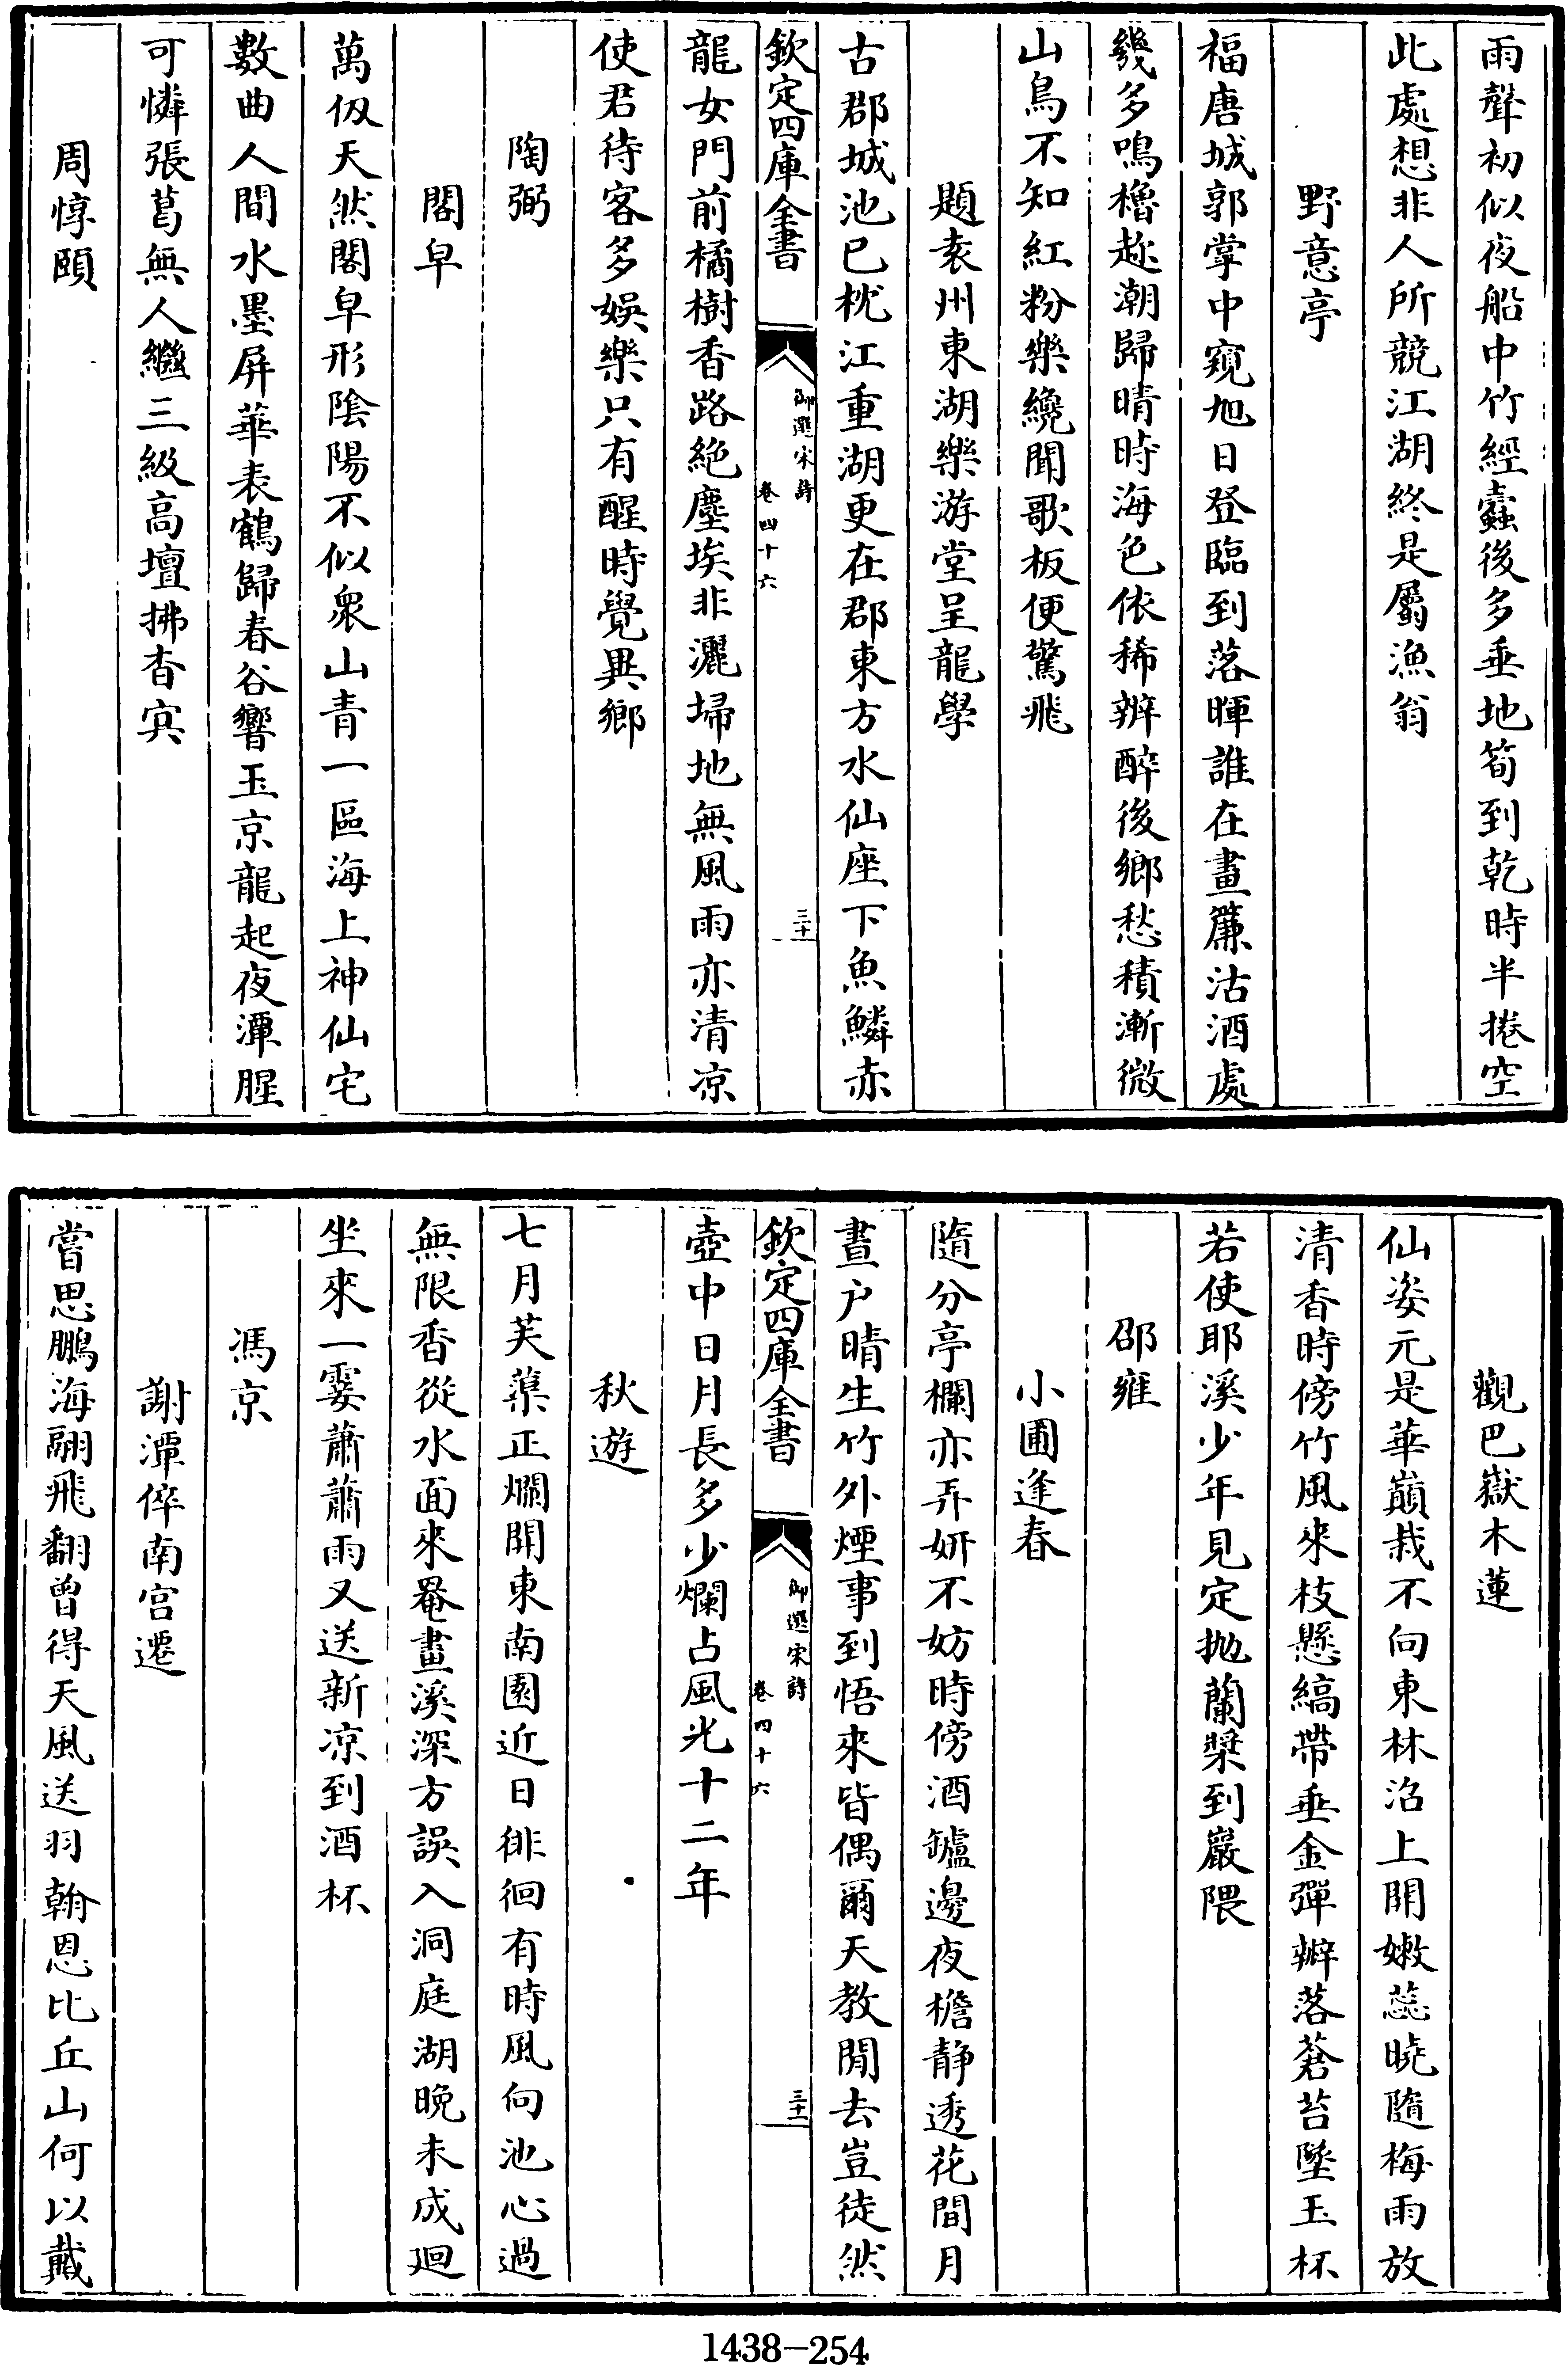 雨聲初似夜船中竹經蠧後多垂地筍到乾時半捲空
此處想非人所競江湖終是屬漁翁
野意亭
福唐城郭掌中窺旭日登臨到落暉誰在畫簾沽酒處
幾多鳴櫓趂潮歸晴時海色依稀辨醉後鄉愁積漸微
山鳥不知紅粉樂纔聞歌板便驚飛
題袁州東湖樂游堂呈龍學
古郡城池已枕江重湖更在郡東方水仙座下魚鱗赤
欽定四庫全書
御選宋詩
卷四十六
三十
龍女門前橘樹香路絶塵埃非灑埽地無風雨亦清凉
使君待客多娛樂只有醒時覺異鄉
陶弼
閤皁
萬仭天然閤皁形陰陽不似衆山青一區海上神仙宅
數曲人間水墨屏華表鶴歸春谷響玉京龍起夜潭腥
可憐張葛無人繼三級高壇拂杳㝠
周惇頤
觀巴嶽木蓮
仙姿元是華巔栽不向東林沼上開嫩蕊曉隨梅雨放
清香時傍竹風來枝懸縞帶垂金彈瓣落蒼苔墜玉杯
若使耶溪少年見定抛蘭槳到巖隈
邵雍
小圃逢春
隨分亭欄亦弄妍不妨時傍酒罏邊夜檐静透花間月
晝户晴生竹外煙事到悟來皆偶爾天教閒去豈徒然
欽定四庫全書
御選宋詩
卷四十六
三十一
壺中日月長多少爛占風光十二年
秋遊
七月芙蕖正爛開東南園近日徘徊有時風向池心過
無限香從水面來罨畫溪深方誤入洞庭湖晚未成廻
坐來一霎蕭蕭雨又送新凉到酒杯
馮京
謝潭倅南宫遷
嘗思鵬海翮飛翻曾得天風送羽翰恩比丘山何以戴
1438-254